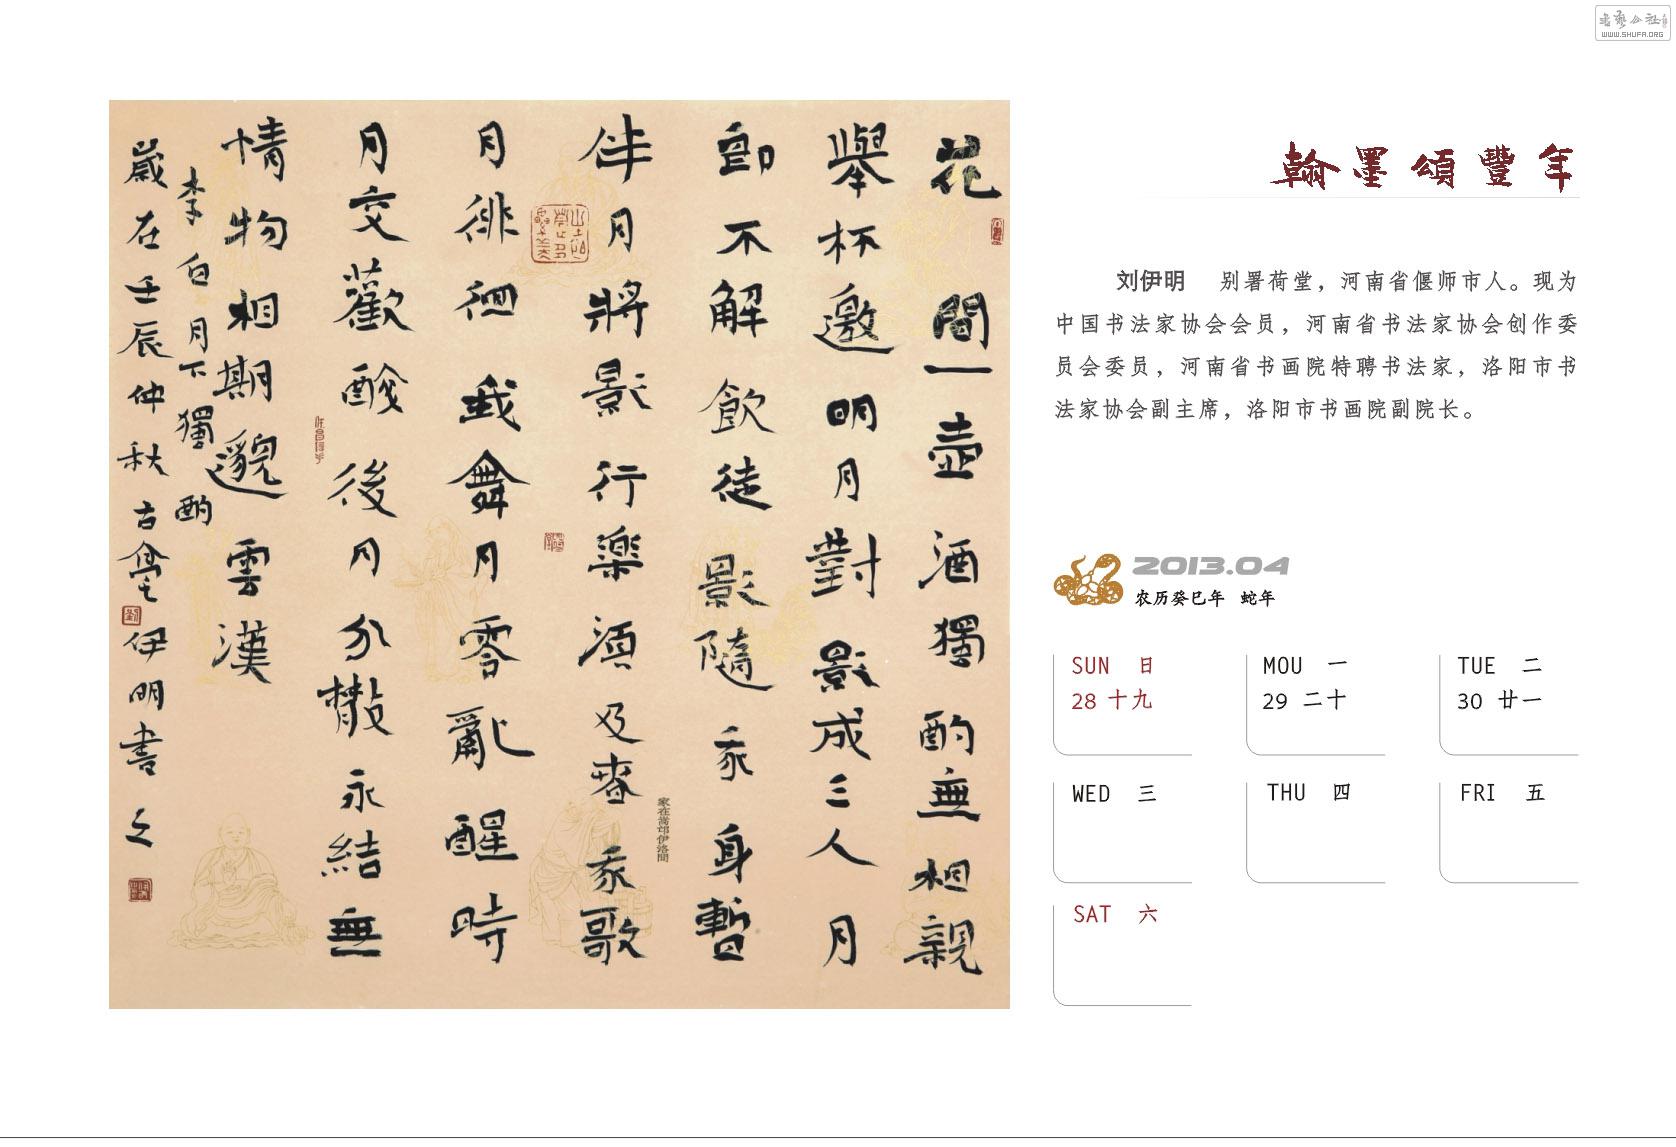 花間一壺酒獨酌無相親
舉杯邀明月對影成三人月
卽不解飲徒影隨我身暫
伴月將影行樂須及春我歌
月徘徊我舞月零亂醒時
月交歡醉後月分散永結無
情物相期邈雲漢
李白月下獨酌
歲在壬辰仲秋古亳伊明書之
家在嵩邙伊洛間
翰墨頌豐年
刘伊明 别署荷堂，河南省偃师市人。现为
中国书法家协会会员，河南省书法家协会创作委
员会委员，河南省书画院特聘书法家，洛阳市书
法家协会副主席，洛阳市书画院副院长。
2013.04
农历癸巳年 蛇年
SUN 日
28 十九
MOU 一
29 二十
TUE 二
30 廿一
WED 三
THU 四
FRI 五
SAT 六
WWW.SHUFA.ORG